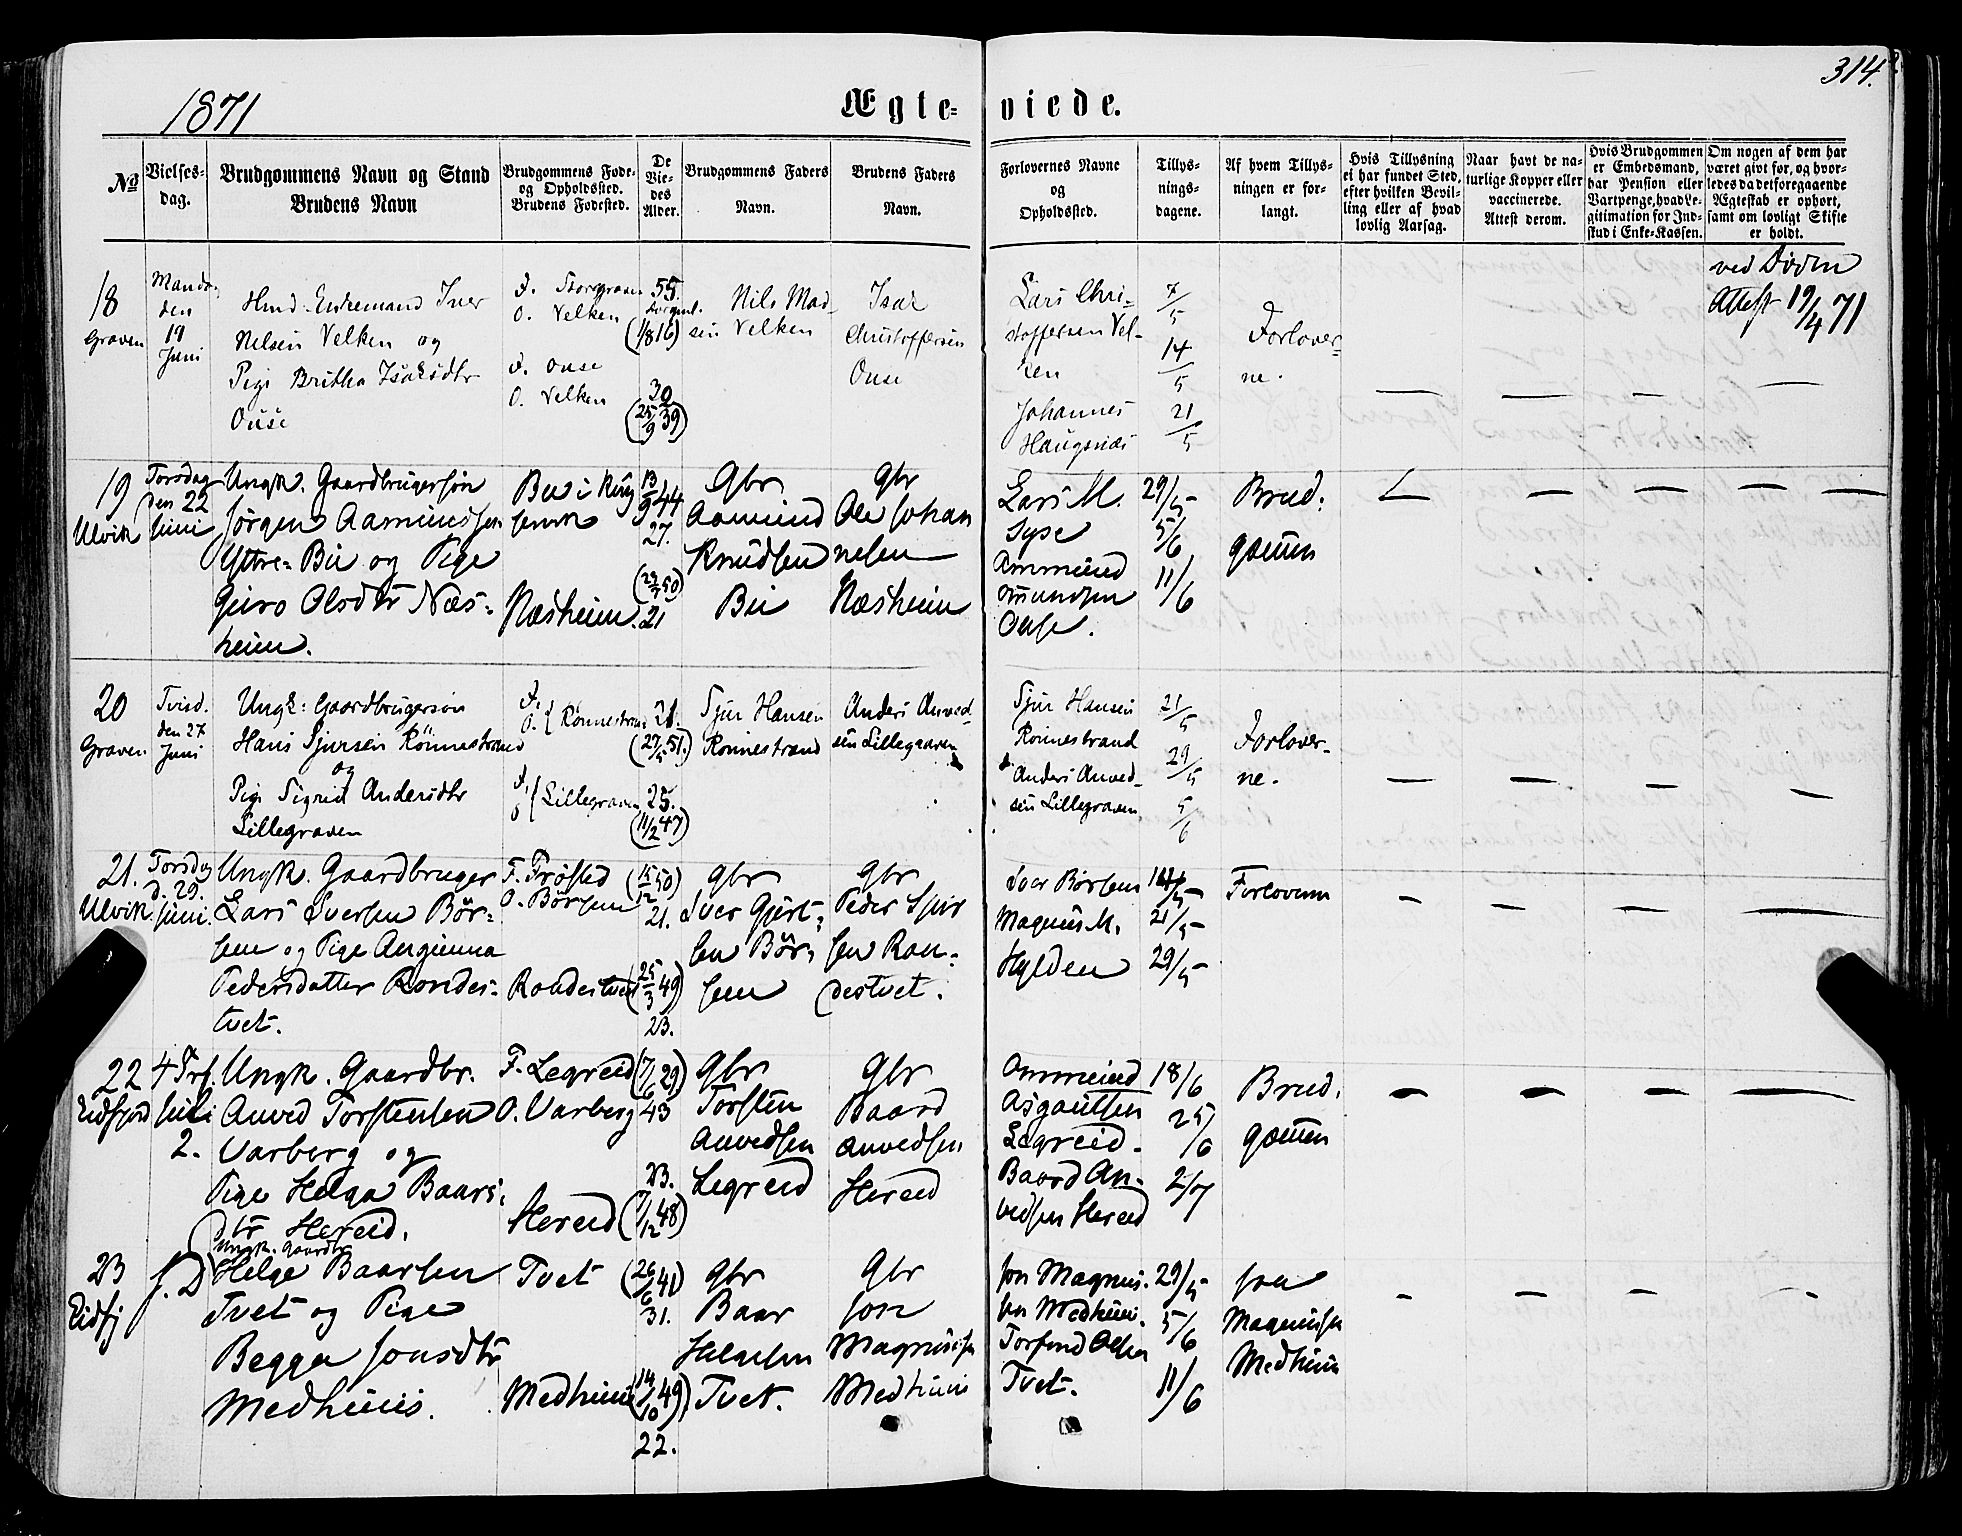 1871
Ægte= viede.
314.
No
Vielses-
dag.
Brudgommens Navn og Stand
Brudens Navn
Brudgommens Føde-
og Opholdssted.
Brudens Fødested.
De
Vie-
des
Alder.
Brudgommens Faders
Navn.
Brudens Faders
Navn.
Forlovernes Navne
og
Opholdssted.
Tillys-
nings-
dagene.
Af hvem Tillys-
ningen er for-
langt.
Hvis Tillysning
ei har fundet Sted,
efter hvilken Bevil-
ling eller af hvad
lovlig Aarsag.
Naar havt de na-
turlige Kopper eller
vaccinerede.
Attest derom.
Hvis Brudgommen
er Embedsmand,
har Pension eller
Vartpenge, hvad Le-
gitimation for Ind-
skud i Enke-Kassen.
Om nogen af dem har
været givt før, og hvor-
ledes da det foregaaende
Ægteskab er ophørt,
samt om lovligt Skifte
er holdt.
18
Graven
Mandag
den
19
Juni
Enkemand Iver
Nilsen Velken og
Pige Britha Isaksdtr
Ouse
O. Velken
F. Ouse
O. Velken
55.
(1/8 16)
30
(25/9 39)
Nils Mad-
sen Velken
Isak
Christoffersen
Ouse
Lars Chri-
stoffersen Vel-
ken
Johannes
Haugsnæs
7/5
14/5
21/5
Forlover-
ne.
— — — —
ved Døden
Attest 19/4 71
19
Ulvik
Torsdag
den 22
Juni
Ungk. Gaardbrugersøn
Jørgen Aamundsen
Ytre-Bu og Pige
Guro Olsdtr Næs-
heim.
Bu i King
servik
Næsheim.
13/9 44
27.
(29/7 50)
21
Gbr
Aamund
Knudsen
Bu
Gbr
Ole Johan
nesen
Næsheim
Lars M.
Syse
Ammund
Omundsen
Ouse.
29/5
5/6
11/6
Brud-
gommen
— — — — —
20
Graven
Tirsd.
den 27
Juni
Ungk: Gaardbrugersøn
Hans Sjursen Rönnestrand
og
Pige Sigrid Andersdtr
Lillegraven
F.
O. { Rönnestrand
F.
O { Lillegraven
21.
(27/5 51.)
25.
(11/2 47)
Sjur Hansen
Rönnestrand
Anders Anved-
sen Lillegraven
Sjur Hansen
Rönnestrand
Anders Anved-
sen Lillegraven
21/5
29/5
5/6
Forlover-
ne.
— — — —
21.
Ulvik
Torsdag
d. 29.
Juni.
Ungk. Gaardbruger
Lars Iversen Bör-
sem og Pige Angunna
Pedersdatter Rondes-
tvet.
F. Tröslad
O. Börsem
Rondestvet
(15/12 50)
21.
(25/3 49)
23.
Gbr
Iver Gjert-
sen Bör-
sem
Gbr
Peder Sjur
sen Ron-
destvet.
Iver Börsem
Magnus M.
Hylden
14/5
21/5
29/5
Forloverne
— — — —
22
Eidfjord
4 Trf.
Juli
2.
Ungk. Gaardbr.
Anved Torstensen
Varberg og
Pige Helga Baars-
dtr Hereid.
F. Legreid
O. Varberg
Hereid
(7/6 29)
43
23.
(7/12 48)
Gbr
Torsten
Anvedsen
Legreid
Gbr
Baard
Anvedsen
Hereid
Ammund
Asgautsen
Legreid.
Baard An-
vedsen Hereid
18/6
25/6
2/7
Brud-
gommen
— — — —
23
Eidfj
s. D
Ungk. Gaardbr
Helge Baarsen
Tvet og Pige
Begga Jonsdtr
Medhuus.
Tvet
Medhuus
(26/6 41)
31.
(14/10 49)
22.
Gbr
Baar
Helgesen
Tvet.
Gbr
Jon
Magnussen
Medhuus
Jon Magnus-
sen Medhuus.
Torfind Olsen
Tvet.
29/5
5/6
11/6
Jon
Magnussen
Medhuus
— — — —